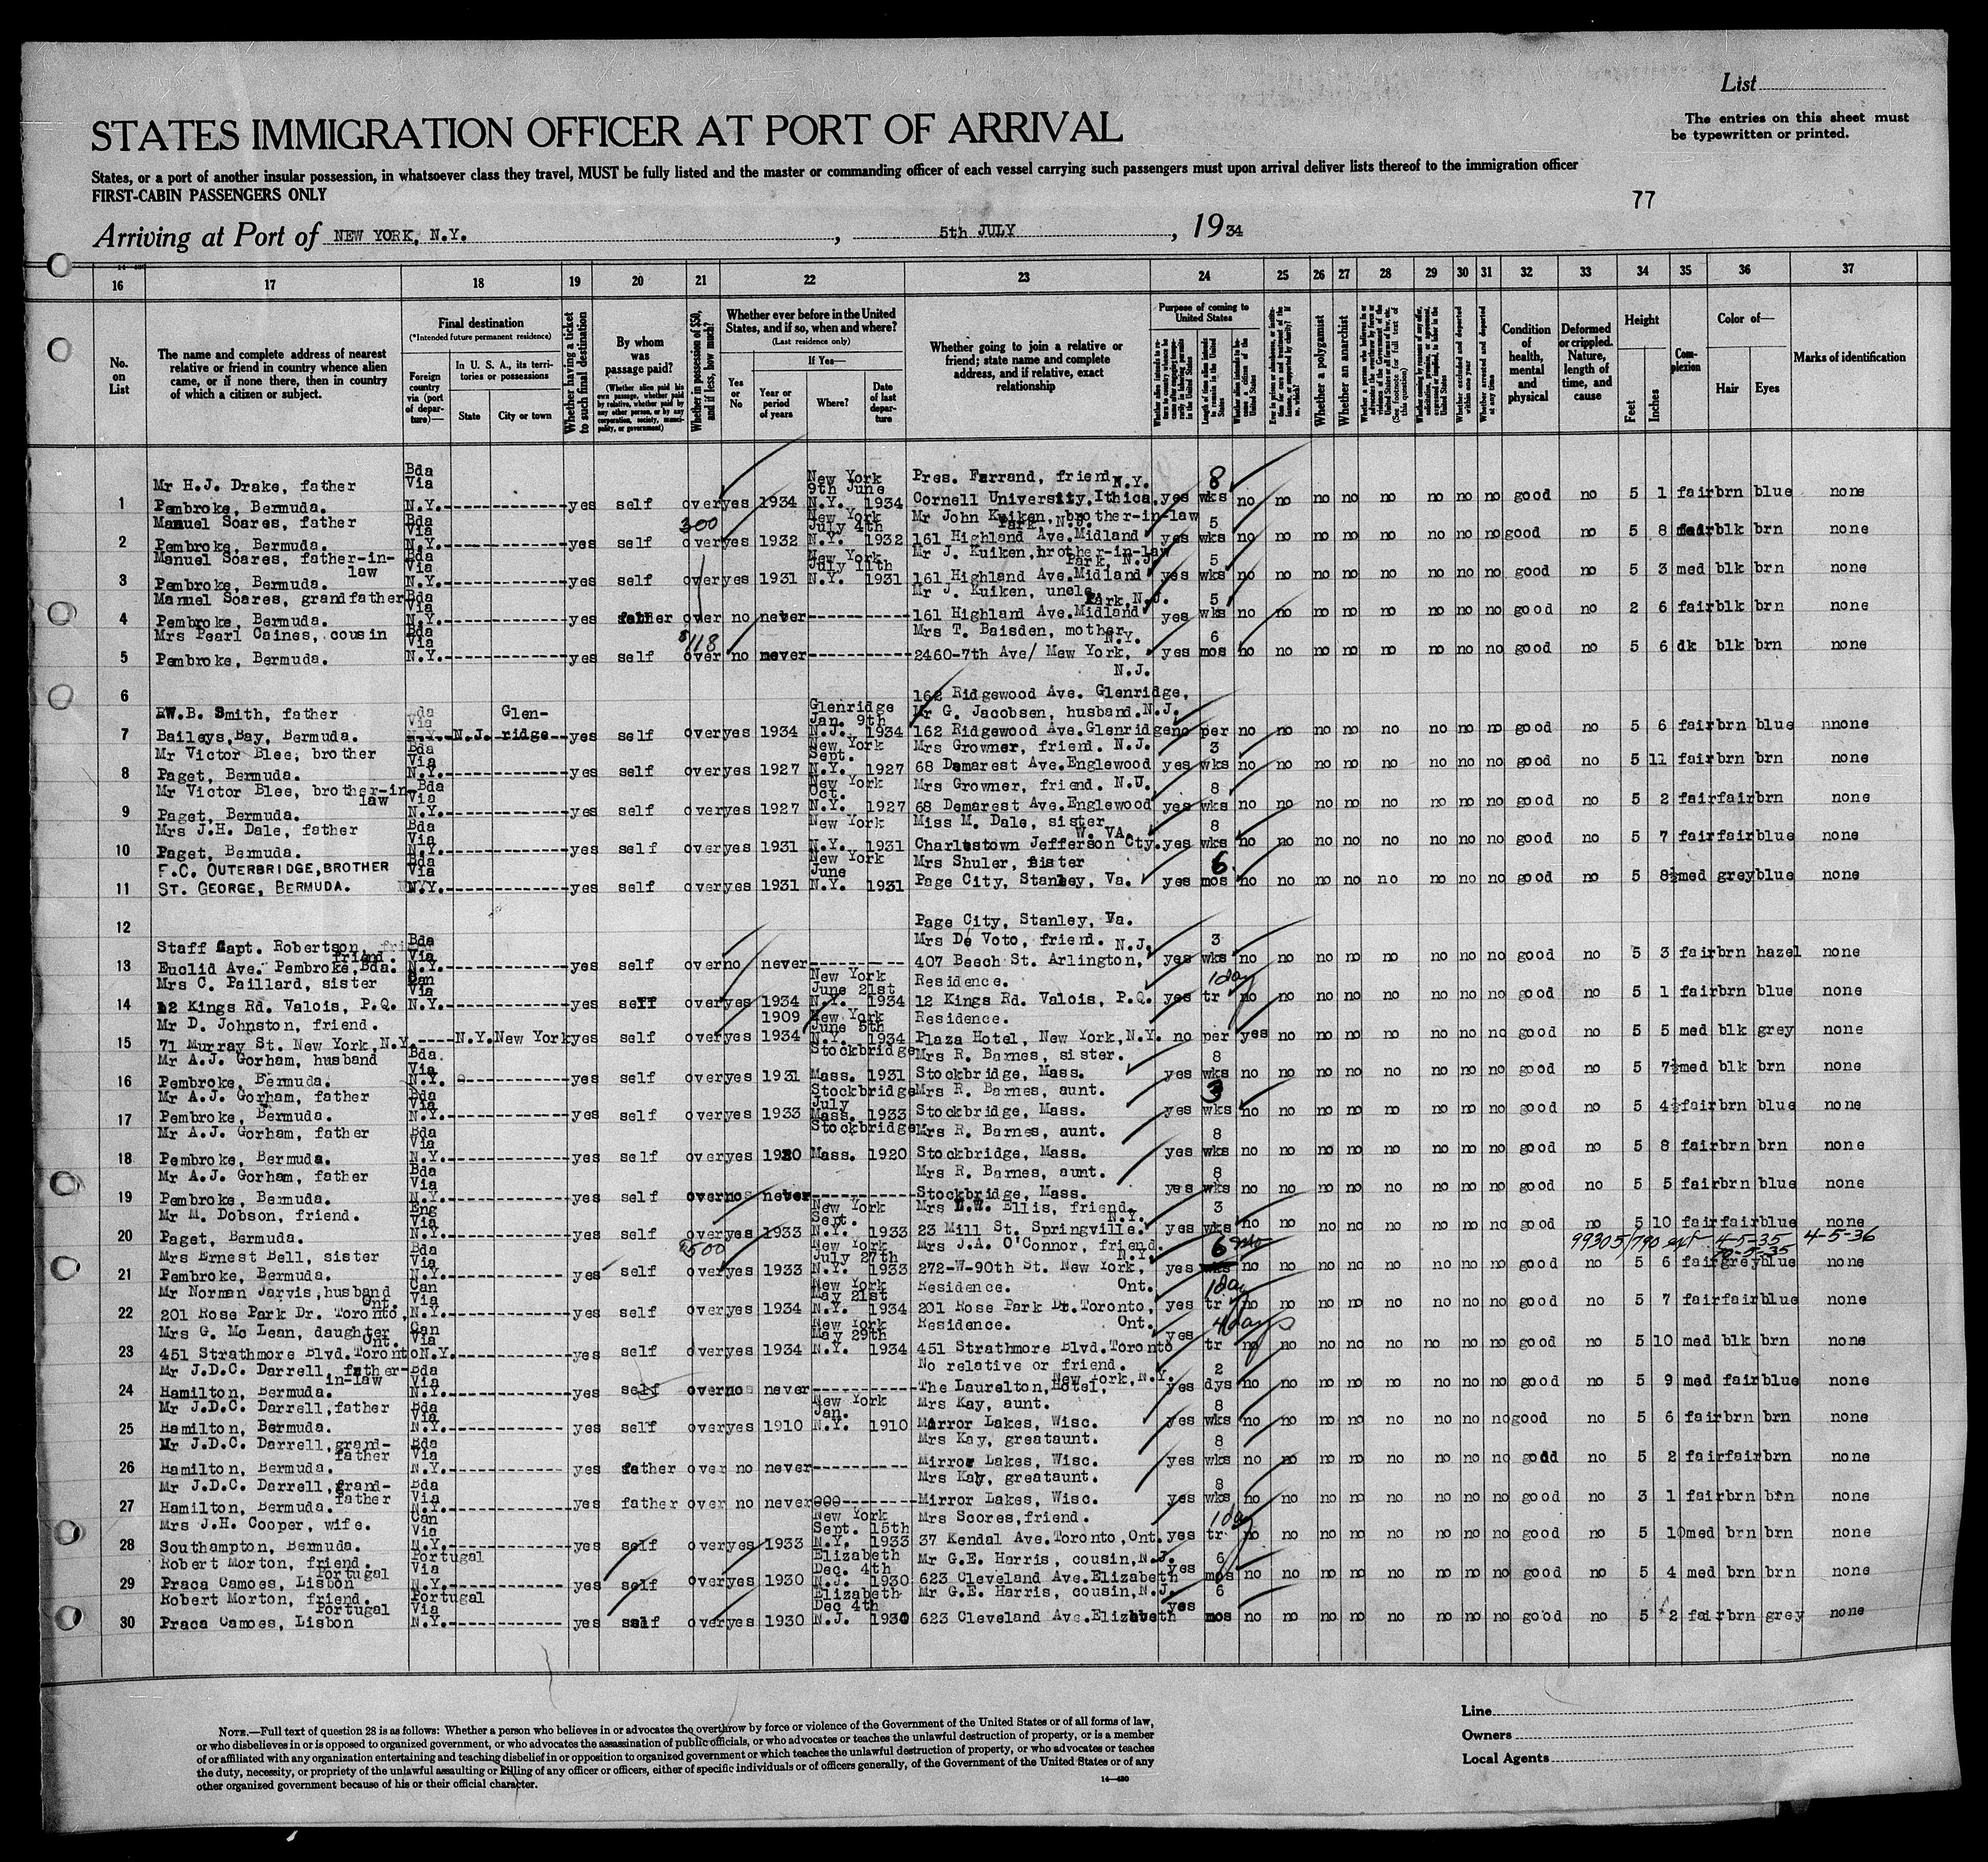 List
The entries on this sheet must
be typewritten or printed.
STATES IMMIGRATION OFFICER AT PORT OF ARRIVAL
States, or a port of another insular possession, in whatsoever class they travel, MUST be fully listed and the master or commanding officer of each vessel carrying such passengers must upon arrival deliver lists thereof to the immigration officer
FIRST-CABIN PASSENGERS ONLY
77
Arriving at Port of NEW YORK, N.Y. , 5th JULY , 1934
16 17 18 19 20 21 22 23 24 25 26 27 28 29 30 31 32 33 34 35 36 37
No. on List
The name and complete address of nearest relative or friend in country whence alien came, or if none there, then in country of which a citizen or subject.
Final destination
(*Intended future permanent residence)
Foreign country via (port of departure)—
In U. S. A., its territories or possessions
State
City or town
Whether having a ticket to such final destination
By whom was passage paid?
(Whether alien paid his own passage, whether paid by relative, whether paid by any other person, or by any corporation, society, municipality, or government)
Whether in possession of $50, and if less, how much?
Whether ever before in the United States, and if so, when and where?
(Last residence only)
If Yes—
Yes or No
Year or period of years
Where?
Date of last departure
Whether going to join a relative or friend; state name and complete address, and if relative, exact relationship
Purpose of coming to United States
Length of time alien intends to remain in the United States
Whether alien intends to become a citizen of the United States
Whether a polygamist
Whether an anarchist
(See footnote for full text of this question)
Whether excluded and deported within one year
Whether arrested and deported at any time
Condition of health, mental and physical
Deformed or crippled. Nature, length of time, and cause
Height
Feet
Inches
Complexion
Color of—
Hair
Eyes
Marks of identification
Mr H.J. Drake, father Bda Via New York 9th June Pres. Farrand, friend N.Y. 8
1 Pembroke, Bermuda. N.Y. yes self over yes 1934 N.Y. 1934 Cornell University, Ithica. yes wks no no no no no no no no good no 5 1 fair brn blue none
Manuel Soares, father Bda Via 300 New York July 4th Mr John Kuiken, brother-in-law Park, N.J. 5
2 Pembroke, Bermuda. N.Y. yes self over yes 1932 N.Y. 1932 161 Highland Ave. Midland yes wks no no no no no no no no good no 5 8 fair blk brn none
Manuel Soares, father-in-law Bda Via New York July 11th Mr J. Kuiken, brother-in-law Park, N.J. 5
3 Pembroke, Bermuda. N.Y. yes self over yes 1931 N.Y. 1931 161 Highland Ave. Midland yes wks no no no no no no no no good no 5 3 med blk brn none
Manuel Soares, grandfather Bda Via Mr J. Kuiken, uncle. Park, N.J. 5
4 Pembroke, Bermuda. N.Y. yes father over no never 161 Highland Ave. Midland yes wks no no no no no no no no good no 2 6 fair blk brn none
Mrs Pearl Caines, cousin Bda Via $118 Mrs T. Baisden, mother N.Y. 6
5 Pembroke, Bermuda. N.Y. yes self over no never 2460-7th Ave/ Mew York, yes mos no no no no no no no no good no 5 6 dk blk brn none
N.J.
6 162 Ridgewood Ave. Glenridge,
W.B. Smith, father Bda Via Glen- Glenridge Jan. 9th Mr G. Jacobsen, husband. N.J.
7 Baileys, Bay, Bermuda. N.Y. N.J. ridge yes self over yes 1934 N.J. 1934 162 Ridgewood Ave. Glenridge no per no no no no no no no no good no 5 6 fair brn blue nnone
Mr Victor Blee, brother Bda Via New York Sept. Mrs Growner, friend. N.J. 3
8 Paget, Bermuda. N.Y. yes self over yes 1927 N.Y. 1927 68 Demarest Ave. Englewood yes wks no no no no no no no no good no 5 11 fair brn brn none
Mr Victor Blee, brother-in-law Bda Via New York Oct. Mrs Growner, friend. N.J. 8
9 Paget, Bermuda. N.Y. yes self over yes 1927 N.Y. 1927 68 Demarest Ave. Englewood yes wks no no no no no no no no good no 5 2 fair fair brn none
Mrs J.H. Dale, father Bda Via New York Miss M. Dale, sister W. VA. 8
10 Paget, Bermuda. N.Y. yes self over yes 1931 N.Y. 1931 Charlestown Jefferson Cty. yes wks no no no no no no no no good no 5 7 fair fair blue none
F.C. OUTERBRIDGE, BROTHER Bda Via New York June Mrs Shuler, sister 6
11 ST. GEORGE, BERMUDA. N.Y. yes self over yes 1931 N.Y. 1931 Page City, Stanley, Va. yes mos no no no no no no no no good no 5 8½ med grey blue none
12 Page City, Stanley, Va.
Staff Capt. Robertson, friend. Bda Via Mrs De Voto, friend. N.J. 3
13 Euclid Ave. Pembroke, Bda. N.Y. yes self over no never 407 Beech St. Arlington, yes wks no no no no no no no no good no 5 3 fair brn hazel none
Mrs C. Paillard, sister Can Via New York June 21st Residence. 1 day
14 12 Kings Rd. Valois, P.Q. N.Y. yes self over yes 1934 N.Y. 1934 12 Kings Rd. Valois, P.Q. yes tr no no no no no no no no good no 5 1 fair brn blue none
Mr D. Johnston, friend. 1909 New York June 5th Residence.
15 71 Murray St. New York, N.Y. N.Y. New York yes self over yes 1934 N.Y. 1934 Plaza Hotel, New York, N.Y. no per yes no no no no no no no good no 5 5 med blk grey none
Mr A.J. Gorham, husband Bda. Via Stockbridge Mrs R. Barnes, sister. 8
16 Pembroke, Bermuda. N.Y. yes self over yes 1931 Mass. 1931 Stockbridge, Mass. yes wks no no no no no no no no good no 5 7½ med blk brn none
Mr A.J. Gorham, father Bda Via Stockbridge July Mrs R. Barnes, aunt. 3
17 Pembroke, Bermuda. N.Y. yes self over yes 1933 Mass. 1933 Stockbridge, Mass. yes wks no no no no no no no no good no 5 4½ fair brn blue none
Mr A.J. Gorham, father Bda Via Stockbridge Mrs R. Barnes, aunt. 8
18 Pembroke, Bermuda. N.Y. yes self over yes 1920 Mass. 1920 Stockbridge, Mass. yes wks no no no no no no no no good no 5 8 fair brn brn none
Mr A.J. Gorham, father Bda Via Mrs R. Barnes, aunt. 8
19 Pembroke, Bermuda. N.Y. yes self over no never Stockbridge, Mass. yes wks no no no no no no no no good no 5 5 fair brn blue none
Mr M. Dobson, friend. Eng Via New York Sept. Mrs Ellis, friend. N.Y. 3
20 Paget, Bermuda. N.Y. yes self over yes 1933 N.Y. 1933 23 Mill St. Springville. yes wks no no no no no no no no good no 5 10 fair fair blue none
99305/790 ext 4-5-35 10-5-35 4-5-36
Mrs Ernest Bell, sister Bda Via $500 New York July 27th Mrs J.A. O'Connor, friend. N.Y. 6 mo
21 Pembroke, Bermuda. N.Y. yes self over yes 1933 N.Y. 1933 272-W-90th St. New York, yes wks no no no no no no no no good no 5 6 fair grey blue none
Mr Norman Jarvis, husband Ont. Can Via New York May 21st Residence. Ont. 1 day
22 201 Rose Park Dr. Toronto, N.Y. yes self over yes 1934 N.Y. 1934 201 Rose Park Dr. Toronto, yes tr no no no no no no no no good no 5 7 fair fair blue none
Mrs G. Mc Lean, daughter Ont. Can Via New York May 29th Residence. Ont. 4 days
23 451 Strathmore Blvd. Toronto N.Y. yes self over yes 1934 N.Y. 1934 451 Strathmore Blvd. Toronto yes tr no no no no no no no no good no 5 10 med blk brn none
Mr J.D.C. Darrell, father-in-law Bda Via No relative or friend. New York, N.Y. 2
24 Hamilton, Bermuda. N.Y. yes self over no never The Laurelton, Hotel, yes dys no no no no no no no no good no 5 9 med fair blue none
Mr J.D.C. Darrell, father Bda Via New York Jan. Mrs Kay, aunt. 8
25 Hamilton, Bermuda. N.Y. yes self over yes 1910 N.Y. 1910 Mirror Lakes, Wisc. yes wks no no no no no no no no good no 5 6 fair brn brn none
Mr J.D.C. Darrell, grand-father Bda Via Mrs Kay, greataunt. 8
26 Hamilton, Bermuda. N.Y. yes father over no never Mirror Lakes, Wisc. yes wks no no no no no no no no godd no 5 2 fair fair brn none
Mr J.D.C. Darrell, grand-father Bda Via Mrs Kay, greataunt. 8
27 Hamilton, Bermuda. N.Y. yes father over no never Mirror Lakes, Wisc. yes wks no no no no no no no no good no 3 1 fair brn brn none
Mrs J.H. Cooper, wife. Can Via New York Sept. 15th Mrs Scores, friend. 1 day
28 Southampton, Bermuda. N.Y. yes self over yes 1933 N.Y. 1933 37 Kendal Ave. Toronto, Ont. yes tr no no no no no no no no good no 5 10 med brn brn none
Robert Morton, friend. Portugal Portugal Via Elizabeth Dec. 4th Mr G.E. Harris, cousin, N.J. 6
29 Praca Camoes, Lisbon N.Y. yes self over yes 1930 N.J. 1930 623 Cleveland Ave. Elizabeth yes mos no no no no no no no no good no 5 4 med brn brn none
Robert Morton, friend. Portugal Portugal Via Elizabeth Dec 4th Mr G.E. Harris, cousin, N.J. 6
30 Praca Camoes, Lisbon N.Y. yes self over yes 1930 N.J. 1930 623 Cleveland Ave. Elizabeth yes mos no no no no no no no no good no 5 2 fair brn grey none
NOTE.—Full text of question 28 is as follows: Whether a person who believes in or advocates the overthrow by force or violence of the Government of the United States or of all forms of law,
or who disbelieves in or is opposed to organized government, or who advocates the assassination of public officials, or who advocates or teaches the unlawful destruction of property, or is a member
of or affiliated with any organization entertaining and teaching disbelief in or opposition to organized government or which teaches the unlawful destruction of property, or who advocates or teaches
the duty, necessity, or propriety of the unlawful assaulting or killing of any officer or officers, either of specific individuals or of officers generally, of the Government of the United States or of any
other organized government because of his or their official character.
14—480
Line
Owners
Local Agents